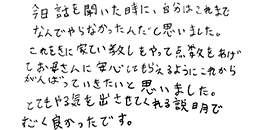 今日話を聞いた時に、自分はこれまで
なんでやらなかったんだと思いました。
これを気に家でい教しをやって点数をあげ
てお母さんに安心してもらえるようにこれから
がんばっていきたいと思いました。
とてもやる気を出させてくれる説明で
すごく良かったです。